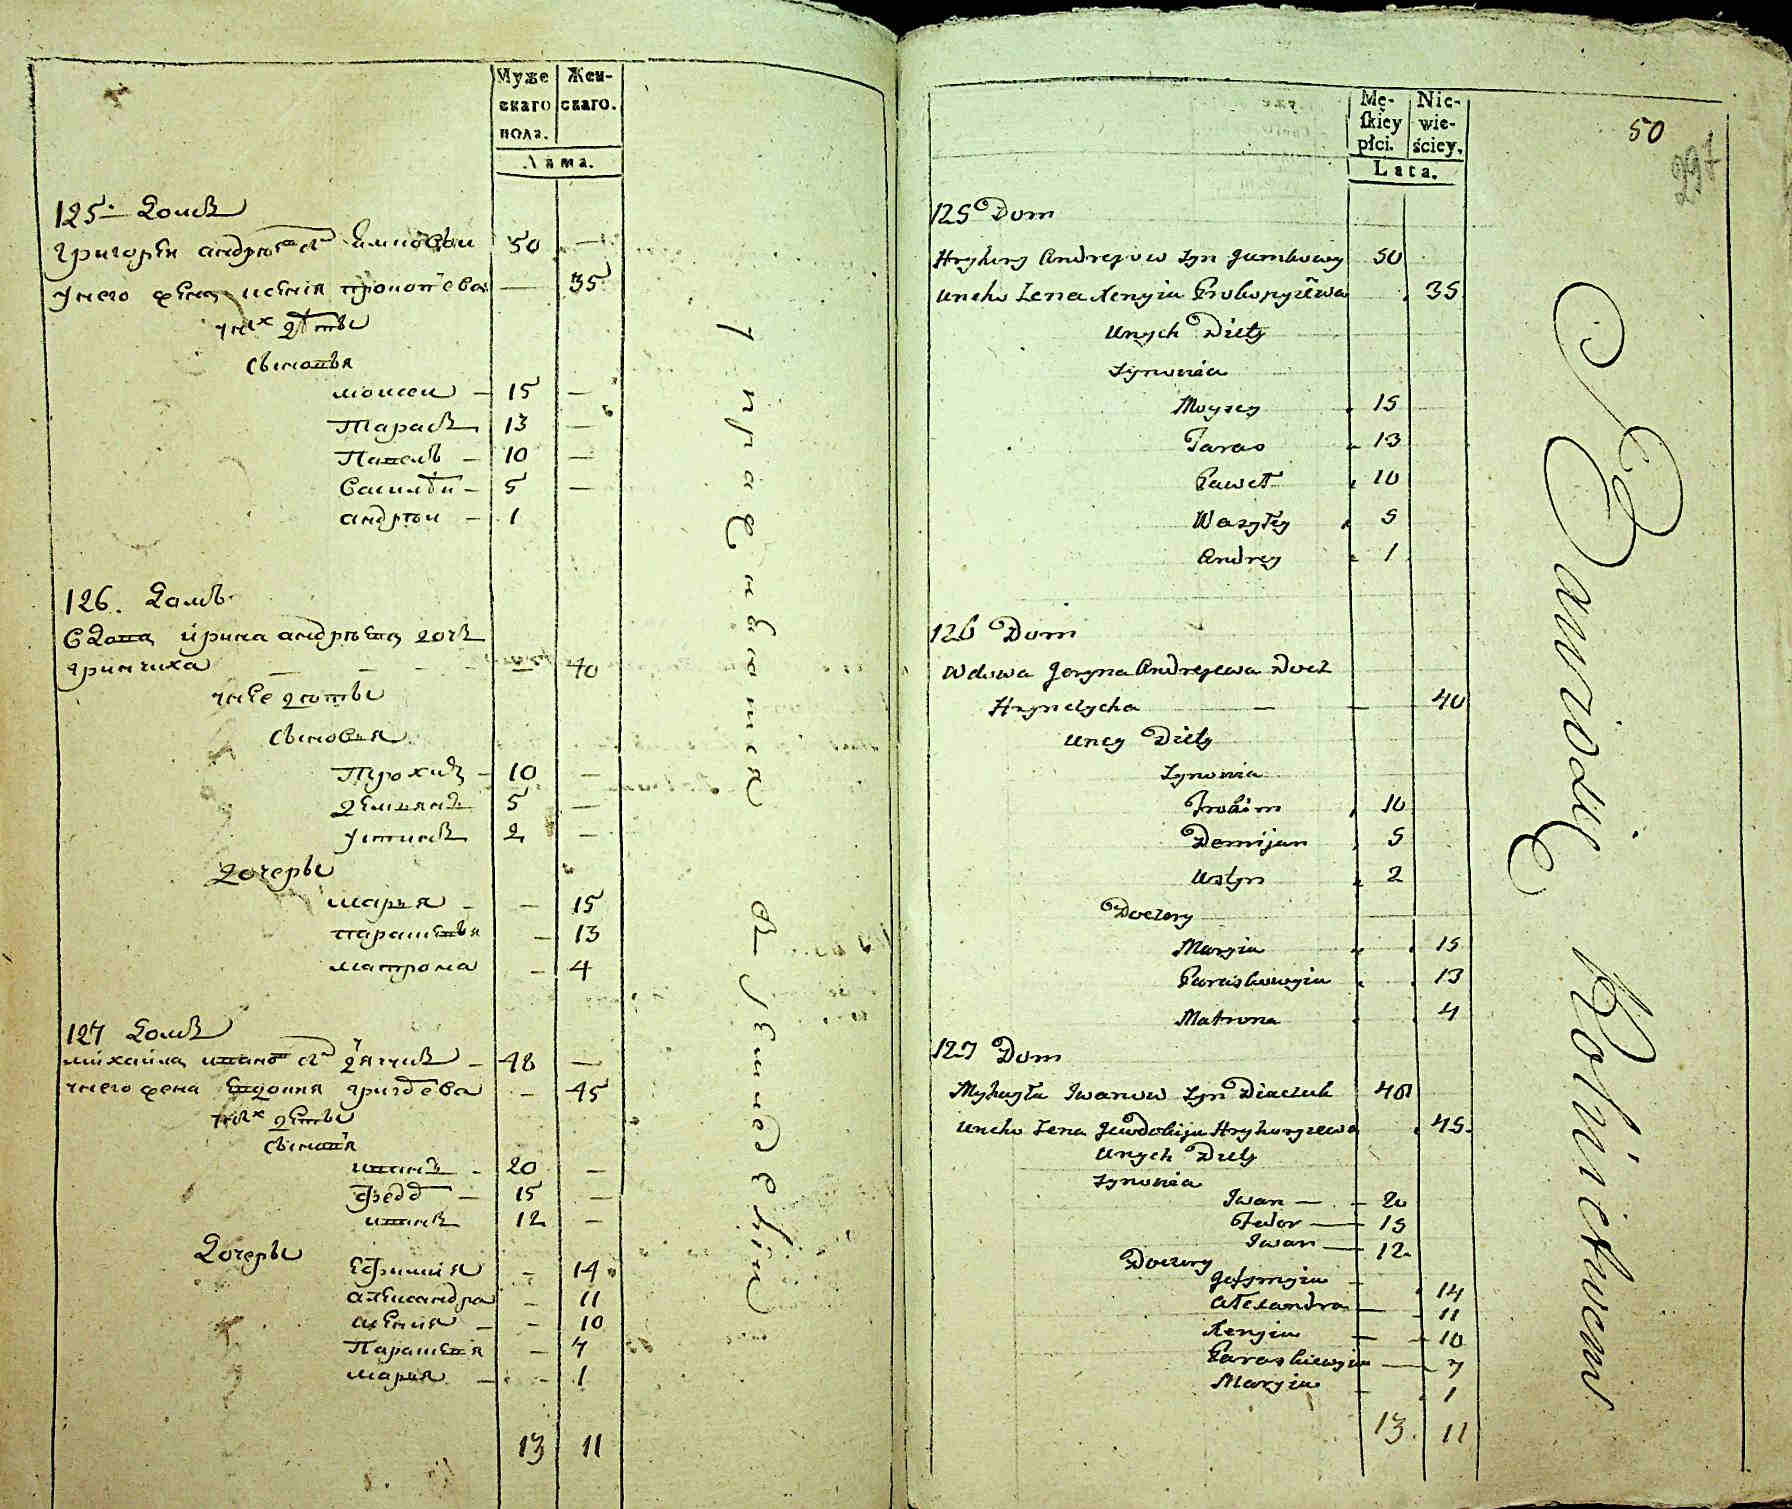 Муже
скаго
полꙋ.
Жен-
скаго.
Лѣта.
125 Домъ
Григореи андрѣевъ 50 —
У него жена ксенія прокопʼева — 35
у них дѣти
сыновья
моисеи — 15 —
Тарасъ 13 —
Павелъ — 10 —
Василѣи — 5 —
андрѣи — 1
126. Домъ
Вдова ирина андрѣева дочъ
гринчиха — — 40
у нее дѣти
сыновья
Трохимъ — 10 —
демьянъ 5 —
устинъ 2 —
дочеры
марья — — 15
парасковья — 13
матрона — 4
127 Домъ
михаила ивановъ дʼячукъ — 48 —
у него жена евдокия григорʼева — 45
у них дѣти
сыновья
иванъ — 20 —
Федор — 15 —
иванъ 12 —
Дочеры
Ефимия — 14
александра — 11
аксения — — 10
Парасковія — 7
марья — — 1
13 11
упражняются въ земледѣліи
Mę-
skiey
płci.
Nie-
wie-
ściey.
Lata.
50
297
125 Dom
Hryhory Andrejow syn 50
uneho Zena Xenyia Prokopyiewa 35
unych Diety
Synowia
Moysey 15
Taras 13
Paweł 10
Wasyley 5
Andrey 1
126 Dom
Wdowa Jeryna Andrejewa Docz
Hrynczycha — — 40
uney Diety
Synowia
Trohim 10
Demijan 5
Ustyn 2
Doczery
Maryia 15
Paraskowyia 13
Matrona 4
127 Dom
Myhayła Iwanow Syn Diaczuk 48
uneho Zena Jewdokija Hryhoryewa 45
unych Diety
Synowia
Iwan — — 20
Fedor — 15
Iwan — 12
Doczery
Jefymyia — 14
Alexandra — 11
Xenyia — 10
Paraskiewyia — 7
Maryia — 1
13 11
Bawiącie Rolnictwem